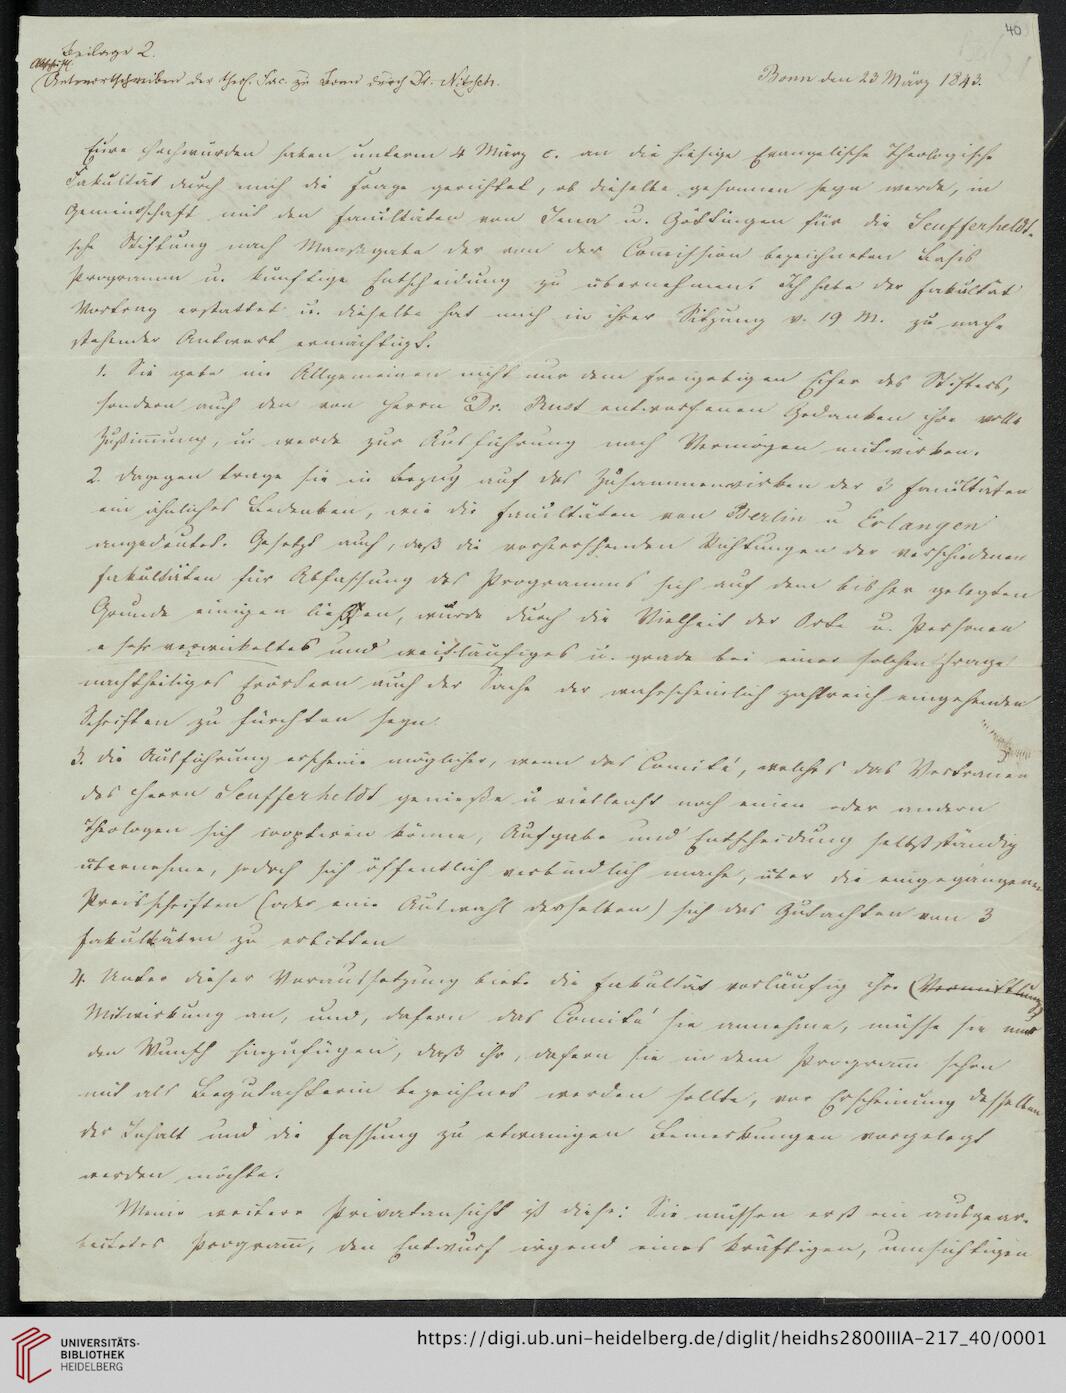 40
Beilage 2.
Abschrift.
Antwortschreiben der theol. Fac. zu Bonn durch Dr. Nitzsch.
Bonn den 23 März 1843.
Eure Hochwürden haben unterm 4 März c. an die hiesige Evangelische Theologische
Fakultät durch mich die Frage gerichtet, ob dieselbe gesonnen seyn werde, in
Gemeinschaft mit den Facultäten von Jena u. Göttingen für die Seufferheldt-
sche Stiftung nach Maaßgabe der von der Comission bezeichneten Basis
Programm u. künftige Entscheidung zu übernehmen. Ich habe der Fakultät
Vortrag erstattet u. dieselbe hat mich in ihrer Sitzung v. 19 M. zu nach-
stehender Antwort ermächtigt.
1. Sie gebe im Allgemeinen nicht nur dem freigebigen Eifer des Stifters,
sondern auch den von Herrn Dr. Rust entworfenen Gedanken ihre volle
Zustimmung, u. werde zur Ausführung nach Vermögen mitwirken.
2. dagegen trage sie in Bezug auf das Zusammenwirken der 3 Facultäten
ein ähnliches Bedenken, wie die Facultäten von Berlin u Erlangen
angedeutet. Gesetzt auch, daß die vorherrschenden Richtungen der verschiedenen
Fakultäten für Abfassung des Programms sich auf dem bisher gelegten
Grunde einigen ließen, würde durch die Vielheit der Orte u. Personen
e sehr verwickeltes und weitläufiges u. grade bei einer solchen Frage
nachtheiliges Erörtern auch der Sache der wahrscheinlich zahlreich eingehenden
Schriften zu fürchten seyn.
3. die Ausführung erscheine möglicher, wenn das Comité, welches das Vertrauen
des Herrn Seufferheldt genieße u vielleicht noch einen oder andern
Theologen sich cooptiren könne, Aufgabe und Entscheidung selbstständig
übernehme, jedoch sich öffentlich verbindlich mache, über die eingegangenen
Preisschriften (oder eine Auswahl derselben) sich das Gutachten von 3
Fakultäten zu erbitten
4. Unter dieser Voraussetzung biete die Fakultät vorläufig ihre (Vermittlung)
Mitwirkung an, und, dafern das Comité sie annehme, müsse sie nur
den Wunsch hinzufügen, daß ihr, dafern sie in dem Programm schon
mit als Begutachterin bezeichnet werden sollte, vor Erscheinung desselben
der Inhalt und die Fassung zu etwanigen Bemerkungen vorgelegt
werden möchte.
Meine weitere Privatansicht ist diese: Sie müssen erst ein ausgear-
beitetes Programm, den Entwurf irgend eines kräftigen, umsichtigen
UNIVERSITÄTS-
BIBLIOTHEK
HEIDELBERG
https://digi.ub.uni-heidelberg.de/diglit/heidhs2800IIIA-217_40/0001